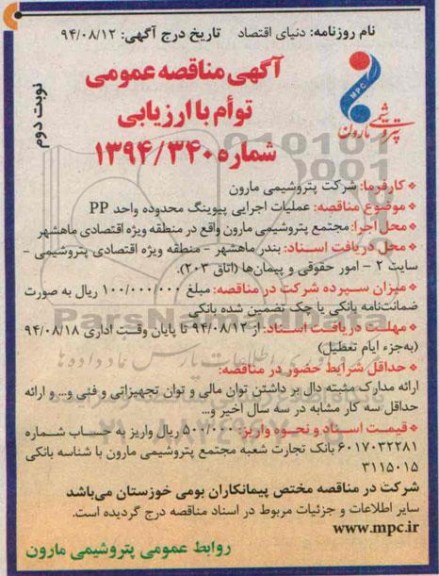 نام روزنامه: دنیای اقتصاد تاریخ درج آگهی: ۹۴/۰۸/۱۲
نوبت دوم
MPC
پتروشیمی مارون
آگهی مناقصه عمومی
توأم با ارزیابی
شماره ۱۳۹۴/۳۴۰
کارفرما: شرکت پتروشیمی مارون
موضوع مناقصه: عملیات اجرایی پیوینگ محدوده واحد PP
محل اجرا: مجتمع پتروشیمی مارون واقع در منطقه ویژه اقتصادی ماهشهر
محل دریافت اسناد: بندر ماهشهر - منطقه ویژه اقتصادی پتروشیمی -
سایت ۲ - امور حقوقی و پیمان‌ها (اتاق ۲۰۳).
میزان سپرده شرکت در مناقصه: مبلغ ۱۰۰/۰۰۰/۰۰۰ ریال به صورت
ضمانت‌نامه بانکی یا چک تضمین شده بانکی
مهلت دریافت اسناد: از ۹۴/۰۸/۱۲ تا پایان وقت اداری ۹۴/۰۸/۱۸
(به‌جزء ایام تعطیل)
حداقل شرایط حضور در مناقصه:
ارائه مدارک مثبته دال بر داشتن توان مالی و توان تجهیزاتی و فنی و... و ارائه
حداقل سه کار مشابه در سه سال اخیر و...
قیمت اسناد و نحوه واریز: ۵۰۰/۰۰۰ ریال واریز به حساب شماره
۶۰۱۷۰۳۲۲۸۱ بانک تجارت شعبه مجتمع پتروشیمی مارون با شناسه بانکی
۳۱۱۵۰۱۵
شرکت در مناقصه مختص پیمانکاران بومی خوزستان می‌باشد
سایر اطلاعات و جزئیات مربوط در اسناد مناقصه درج گردیده است.
www.mpc.ir
روابط عمومی پتروشیمی مارون